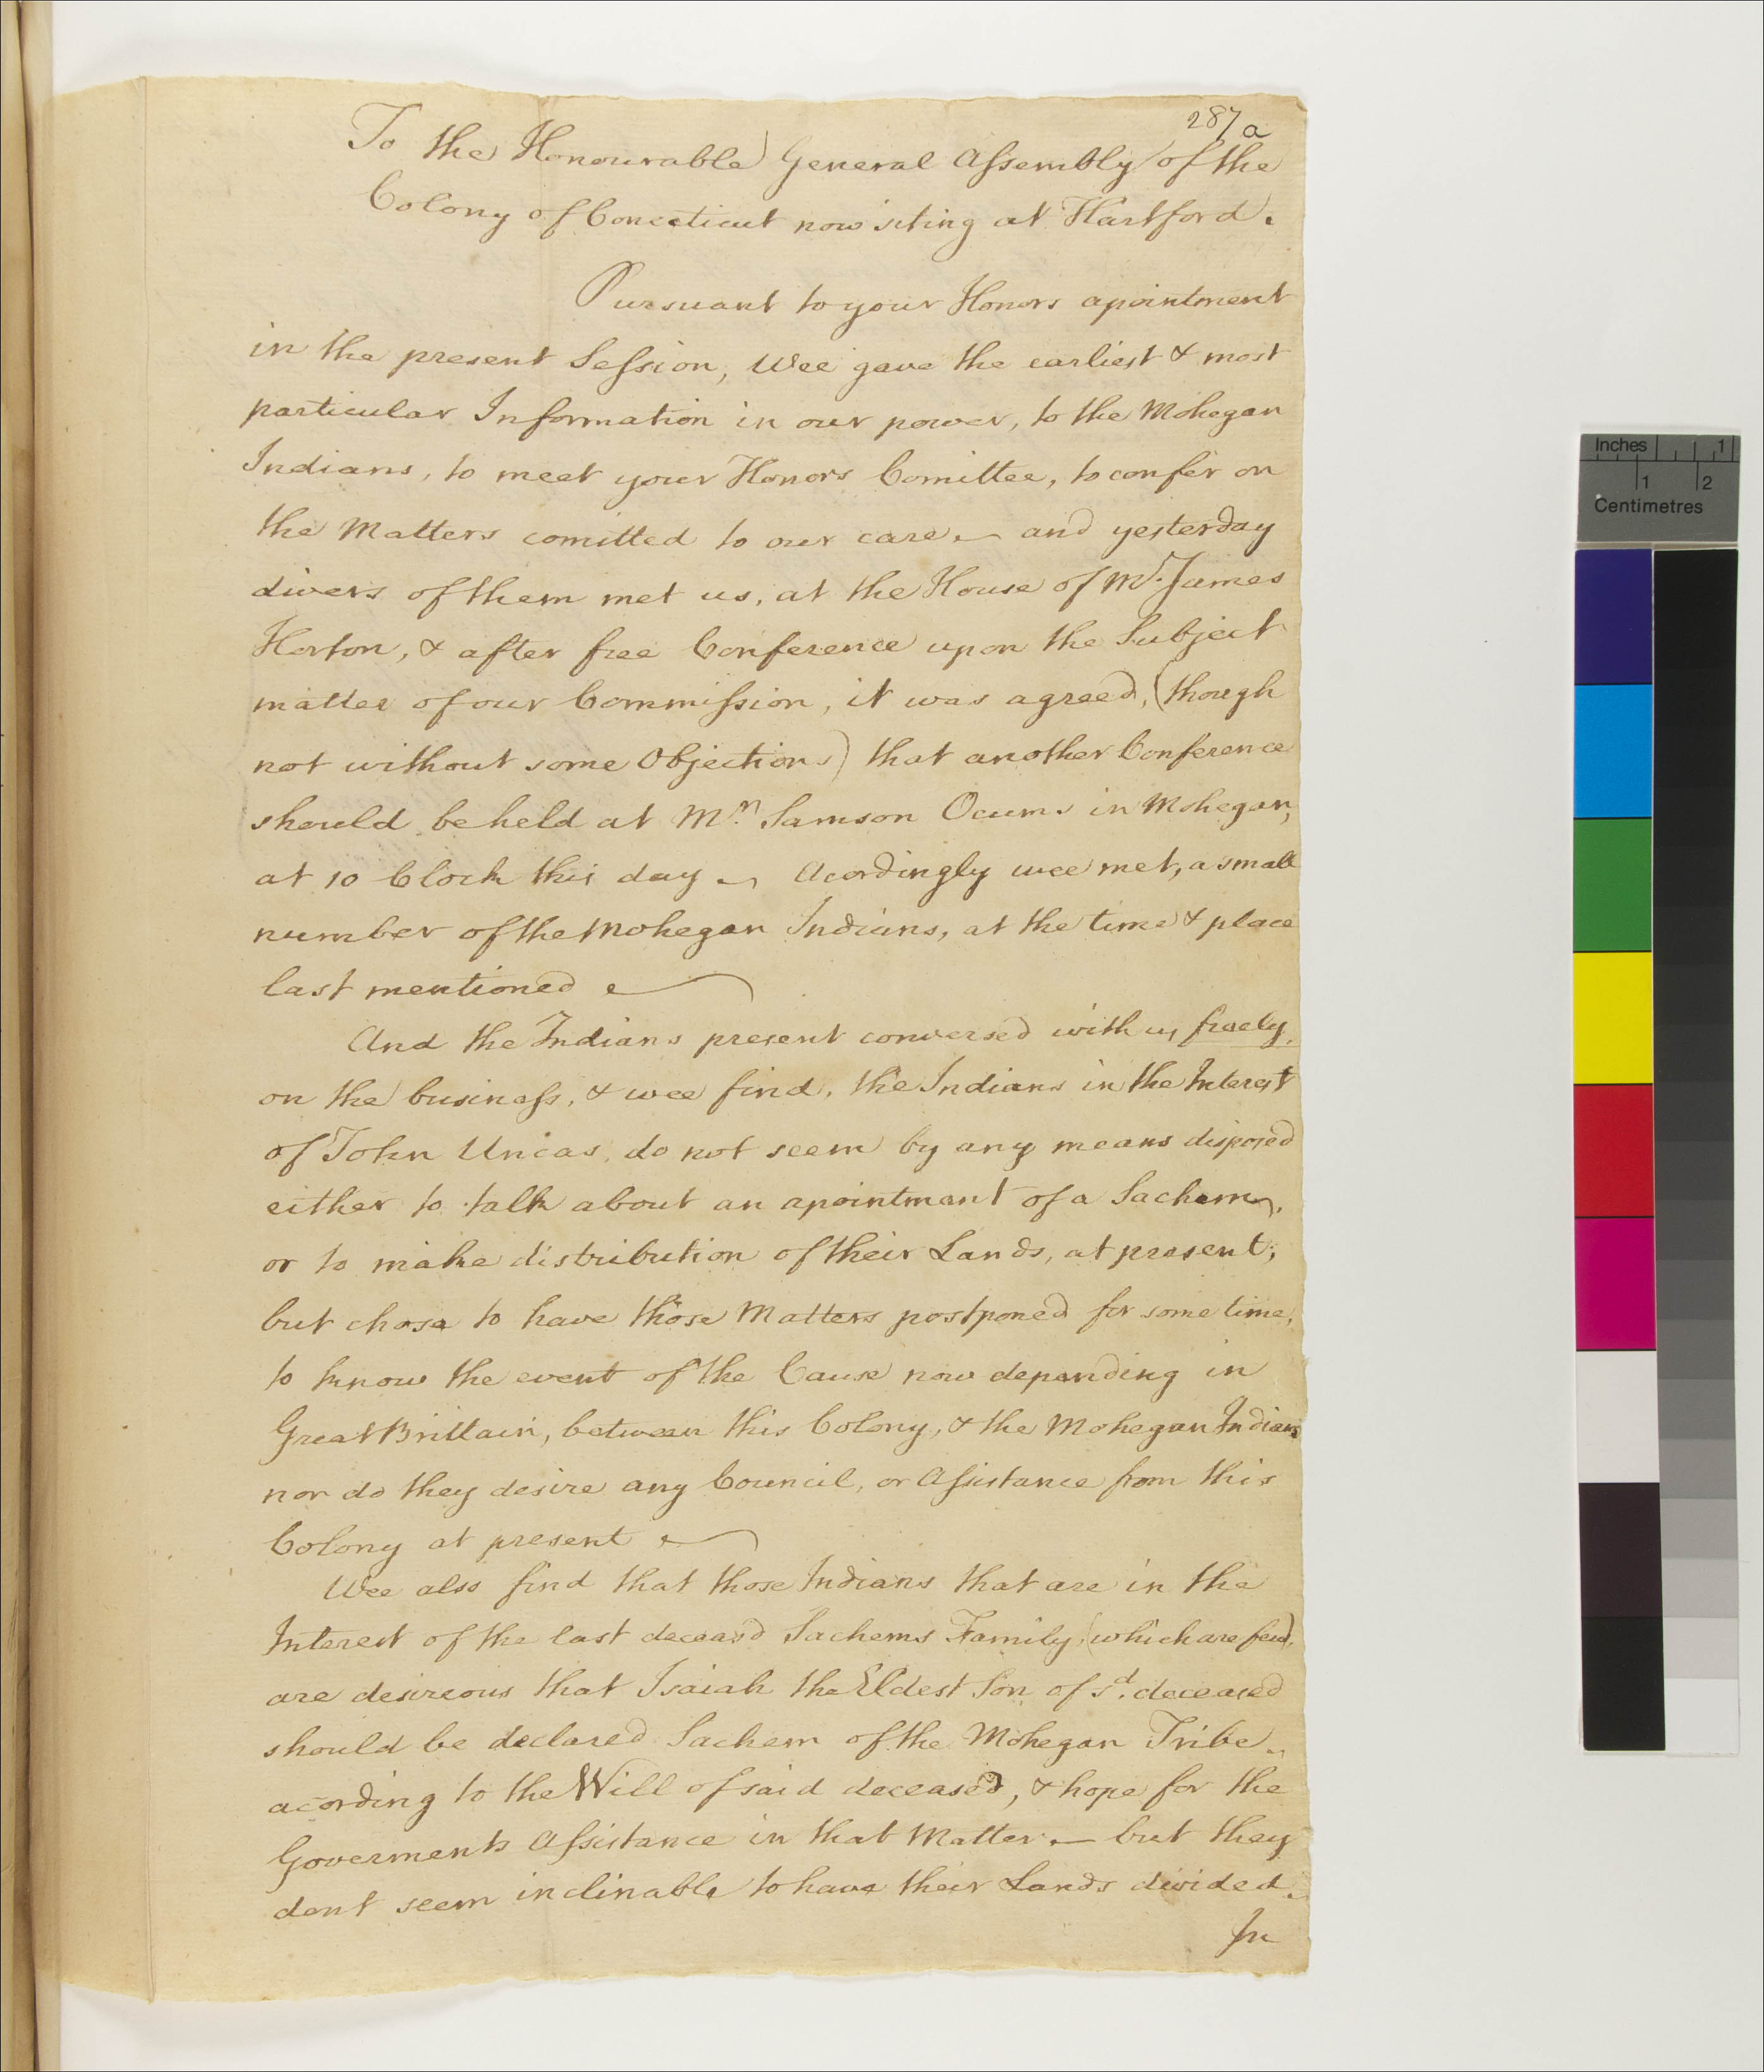 287 a
To the Honourable General Assembly of the
Colony of Conecticut now siting at Hartford.
Pursuant to your Honors apointment
in the present Session, Wee gave the earliest & most
particular Information in our power, to the Mohegan
Indians, to meet your Honors Comittee, to confer on
the Matters comitted to our care — and yesterday
divers of them met us, at the House of Mr. James
Horton, & after free Conference upon the Subject
matter of our Commission, it was agreed, (though
not without some Objections) that another Conference
should be held at Mr. Samson Ocums in Mohegan,
at 10 Clock this day — Acordingly wee met, a small
number of the Mohegan Indians, at the time & place
last mentioned
And the Indians present conversed with us freely,
on the business, & wee find, the Indians in the Interest
of John Uncas, do not seem by any means disposed
either to talk about an apointment of a Sachem,
or to make distribution of their Lands, at present;
but chose to have those Matters postponed for some time,
to know the event of the Cause now depending in
Great Brittain, between this Colony, & the Mohegan Indians
nor do they desire any Council, or Assistance from this
Colony at present
Wee also find that those Indians that are in the
Interest of the last deceasd Sachems Family, (which are few),
are desireous that Isaiah the Eldest Son of sd. deceased
should be declared Sachem of the Mohegan Tribe
acording to the Will of said deceased, & hope for the
Goverments Assistance in that Matter — but they
dont seem inclinable to have their Lands divided.
In
Inches 1
1 2
Centimetres